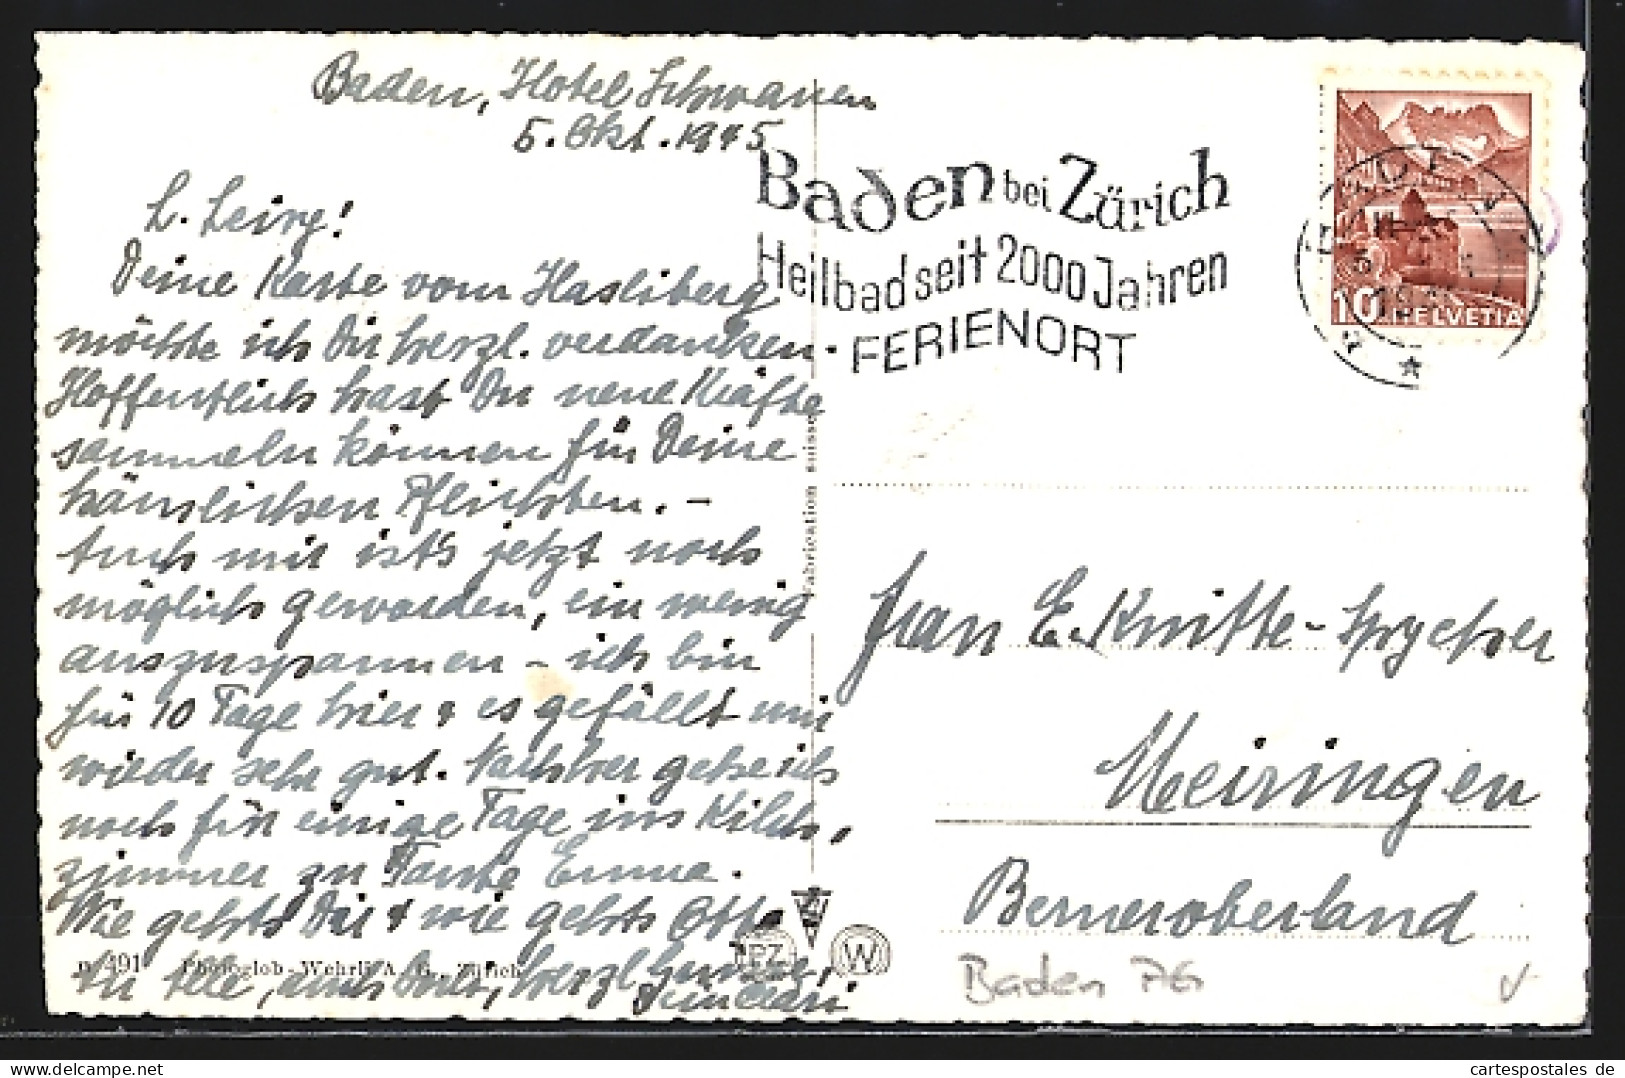 Baden, Hotel Schwanen
5. Okt. 1945
L. Leiny!
Deine Karte vom Hasliberg
möchte ich Dir herzl. verdanken.
Hoffentlich hast Du neue Kräfte
sammeln können für Deine
häuslichen Pflichten. –
Auch mir ist's jetzt noch
möglich geworden, ein wenig
auszuspannen – ich bin
für 10 Tage hier & es gefällt mir
wieder sehr gut. Nachher gehe ich
noch für einige Tage ins Kilch,
zimmer zu Tante Emma.
Wie gehts Dir & wie gehts Otto
herzl.
491 Photoglob-Wehrli A. G., Zürich
Fabrication suisse
PZ
W
Baden bei Zürich
Heilbad seit 2000 Jahren
FERIENORT
10 HELVETIA
Frau E. Knitte-Spycher
Meiringen
Berneroberland
Baden AG
cartespostales de